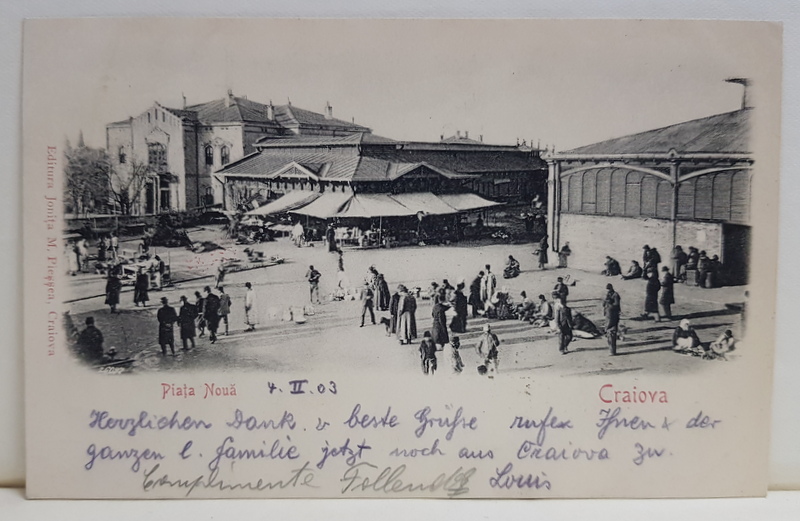 Editura Joniţa M. Pleşşea, Craiova
Piaţa Nouă 4. II. 03 Craiova
Herzlichen Dank. & beste Grüße rufe Ihnen & der
ganzen l. familie jetzt noch aus Craiova zu.
Complimente Louis